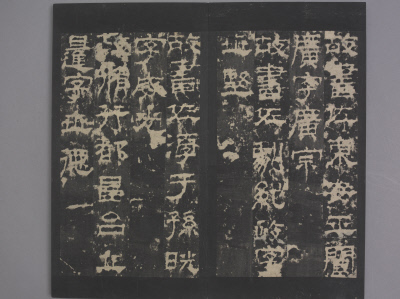 故書佐東安平閻
廣字廣宗
故書佐劇紀政字
世堅
故書佐淳于孫晄
字威
故脩行都昌台丘
暹字世德